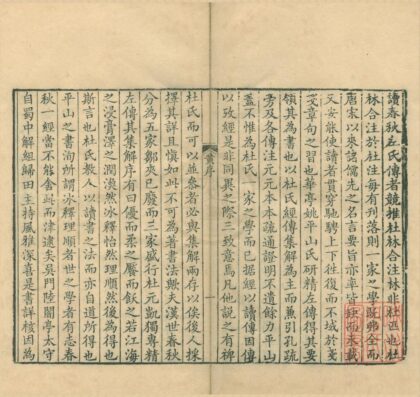 讀春秋左氏傳者競推杜林合注林非杜匹也杜
林合注於杜注每有刋落則一家之學既弗全而
唐宋以來諸儒先之名言要旨亦率皆缺而未載
又安能使讀者貫穿馳騁上下往復而不域於
章句之習也華亭姚平山氏研精左傳得其要
領其為書也以杜氏經傳集解為主而兼引孔疏
旁及各傳注元元本本疏通證明不遺餘力平山
蓋不惟為杜氏一家之學而已據經以讀傳因傳
以攷經是非同異之際三致意焉凡他説之有裨
杜氏而可以並參者必與集解兩存以俟後人採
擇其詳且慎如此不可為著書法歟夫漢世春秋
分為五家鄒夾已廢而三家盛行杜元凱獨專精
左傳其集解序有曰優而柔之饜而飫之若江海
之浸膏澤之潤渙然冰釋怡然理順然後為得也
斯言也杜氏教人以讀書之法而亦自道所得也
平山之書洵所謂冰釋理順者世之學者有志春
秋一經當不能舍此而津逮矣吴門陸閬亭太守
自蜀中解組歸田主持風雅深喜是書詳核因為
黄序
一